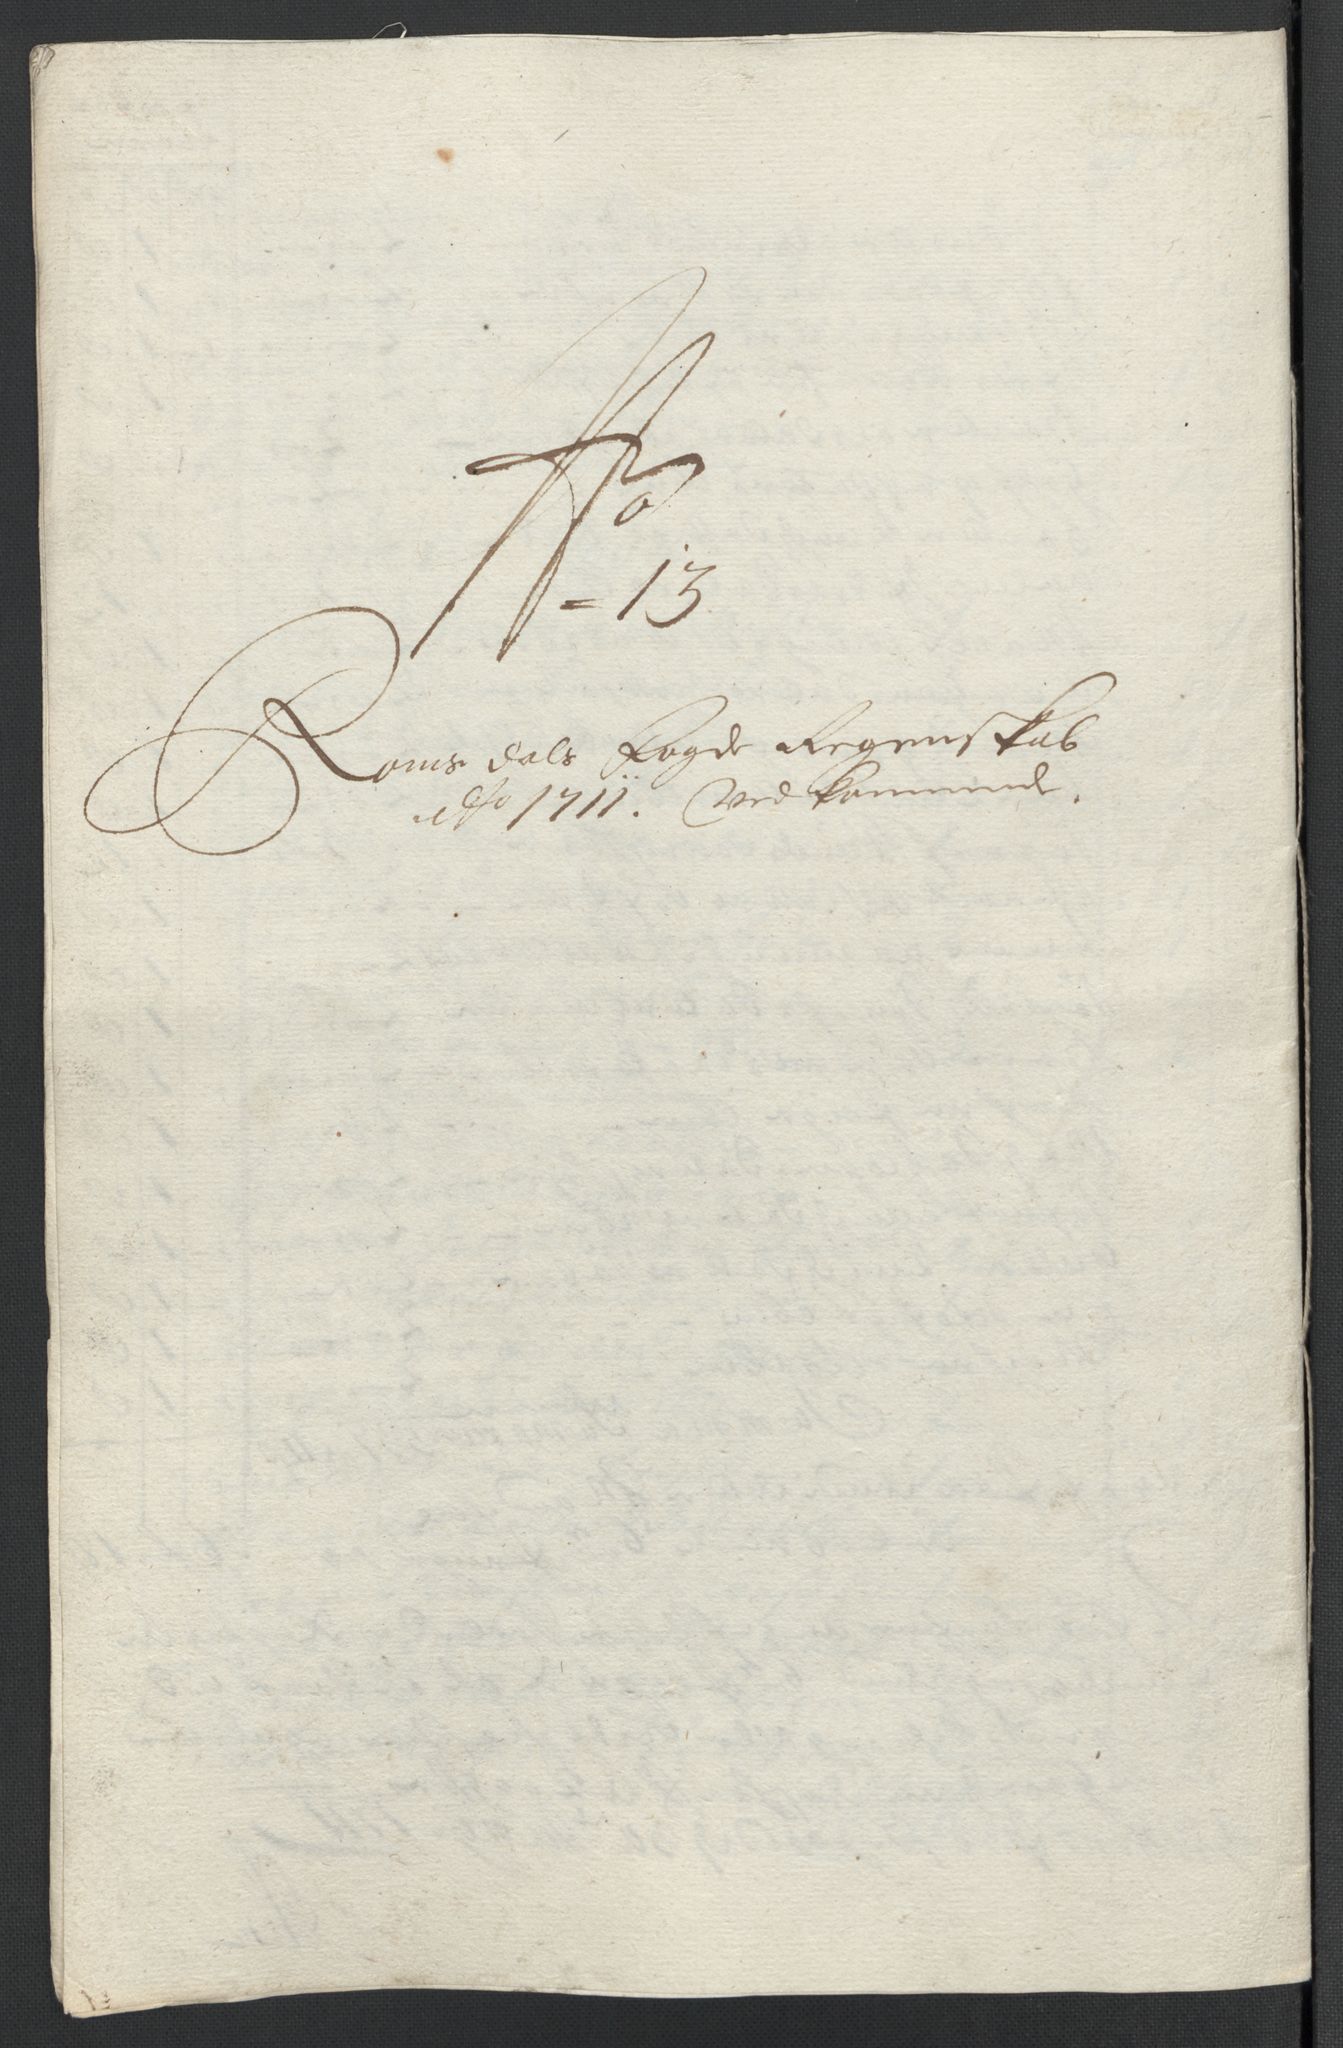 No
13
Romsdals Fogde Regenskab
Ao 1711. Vedkommende.